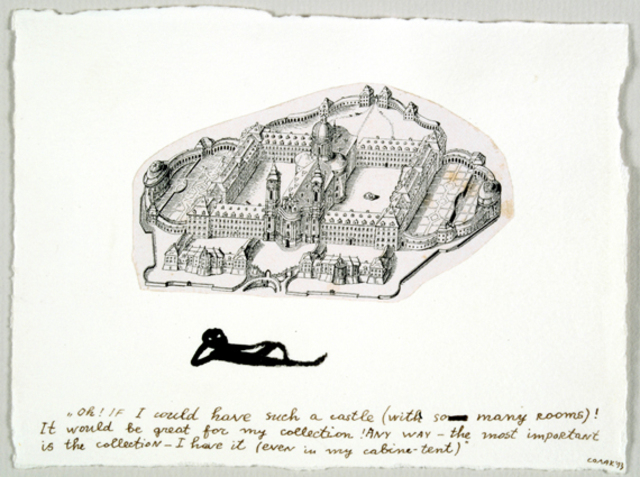 „Oh! IF I could have such a castle (with so many rooms)!
It would be great for my collection! ANY WAY – the most important
is the collection – I have it (even in my cabine-tent)”